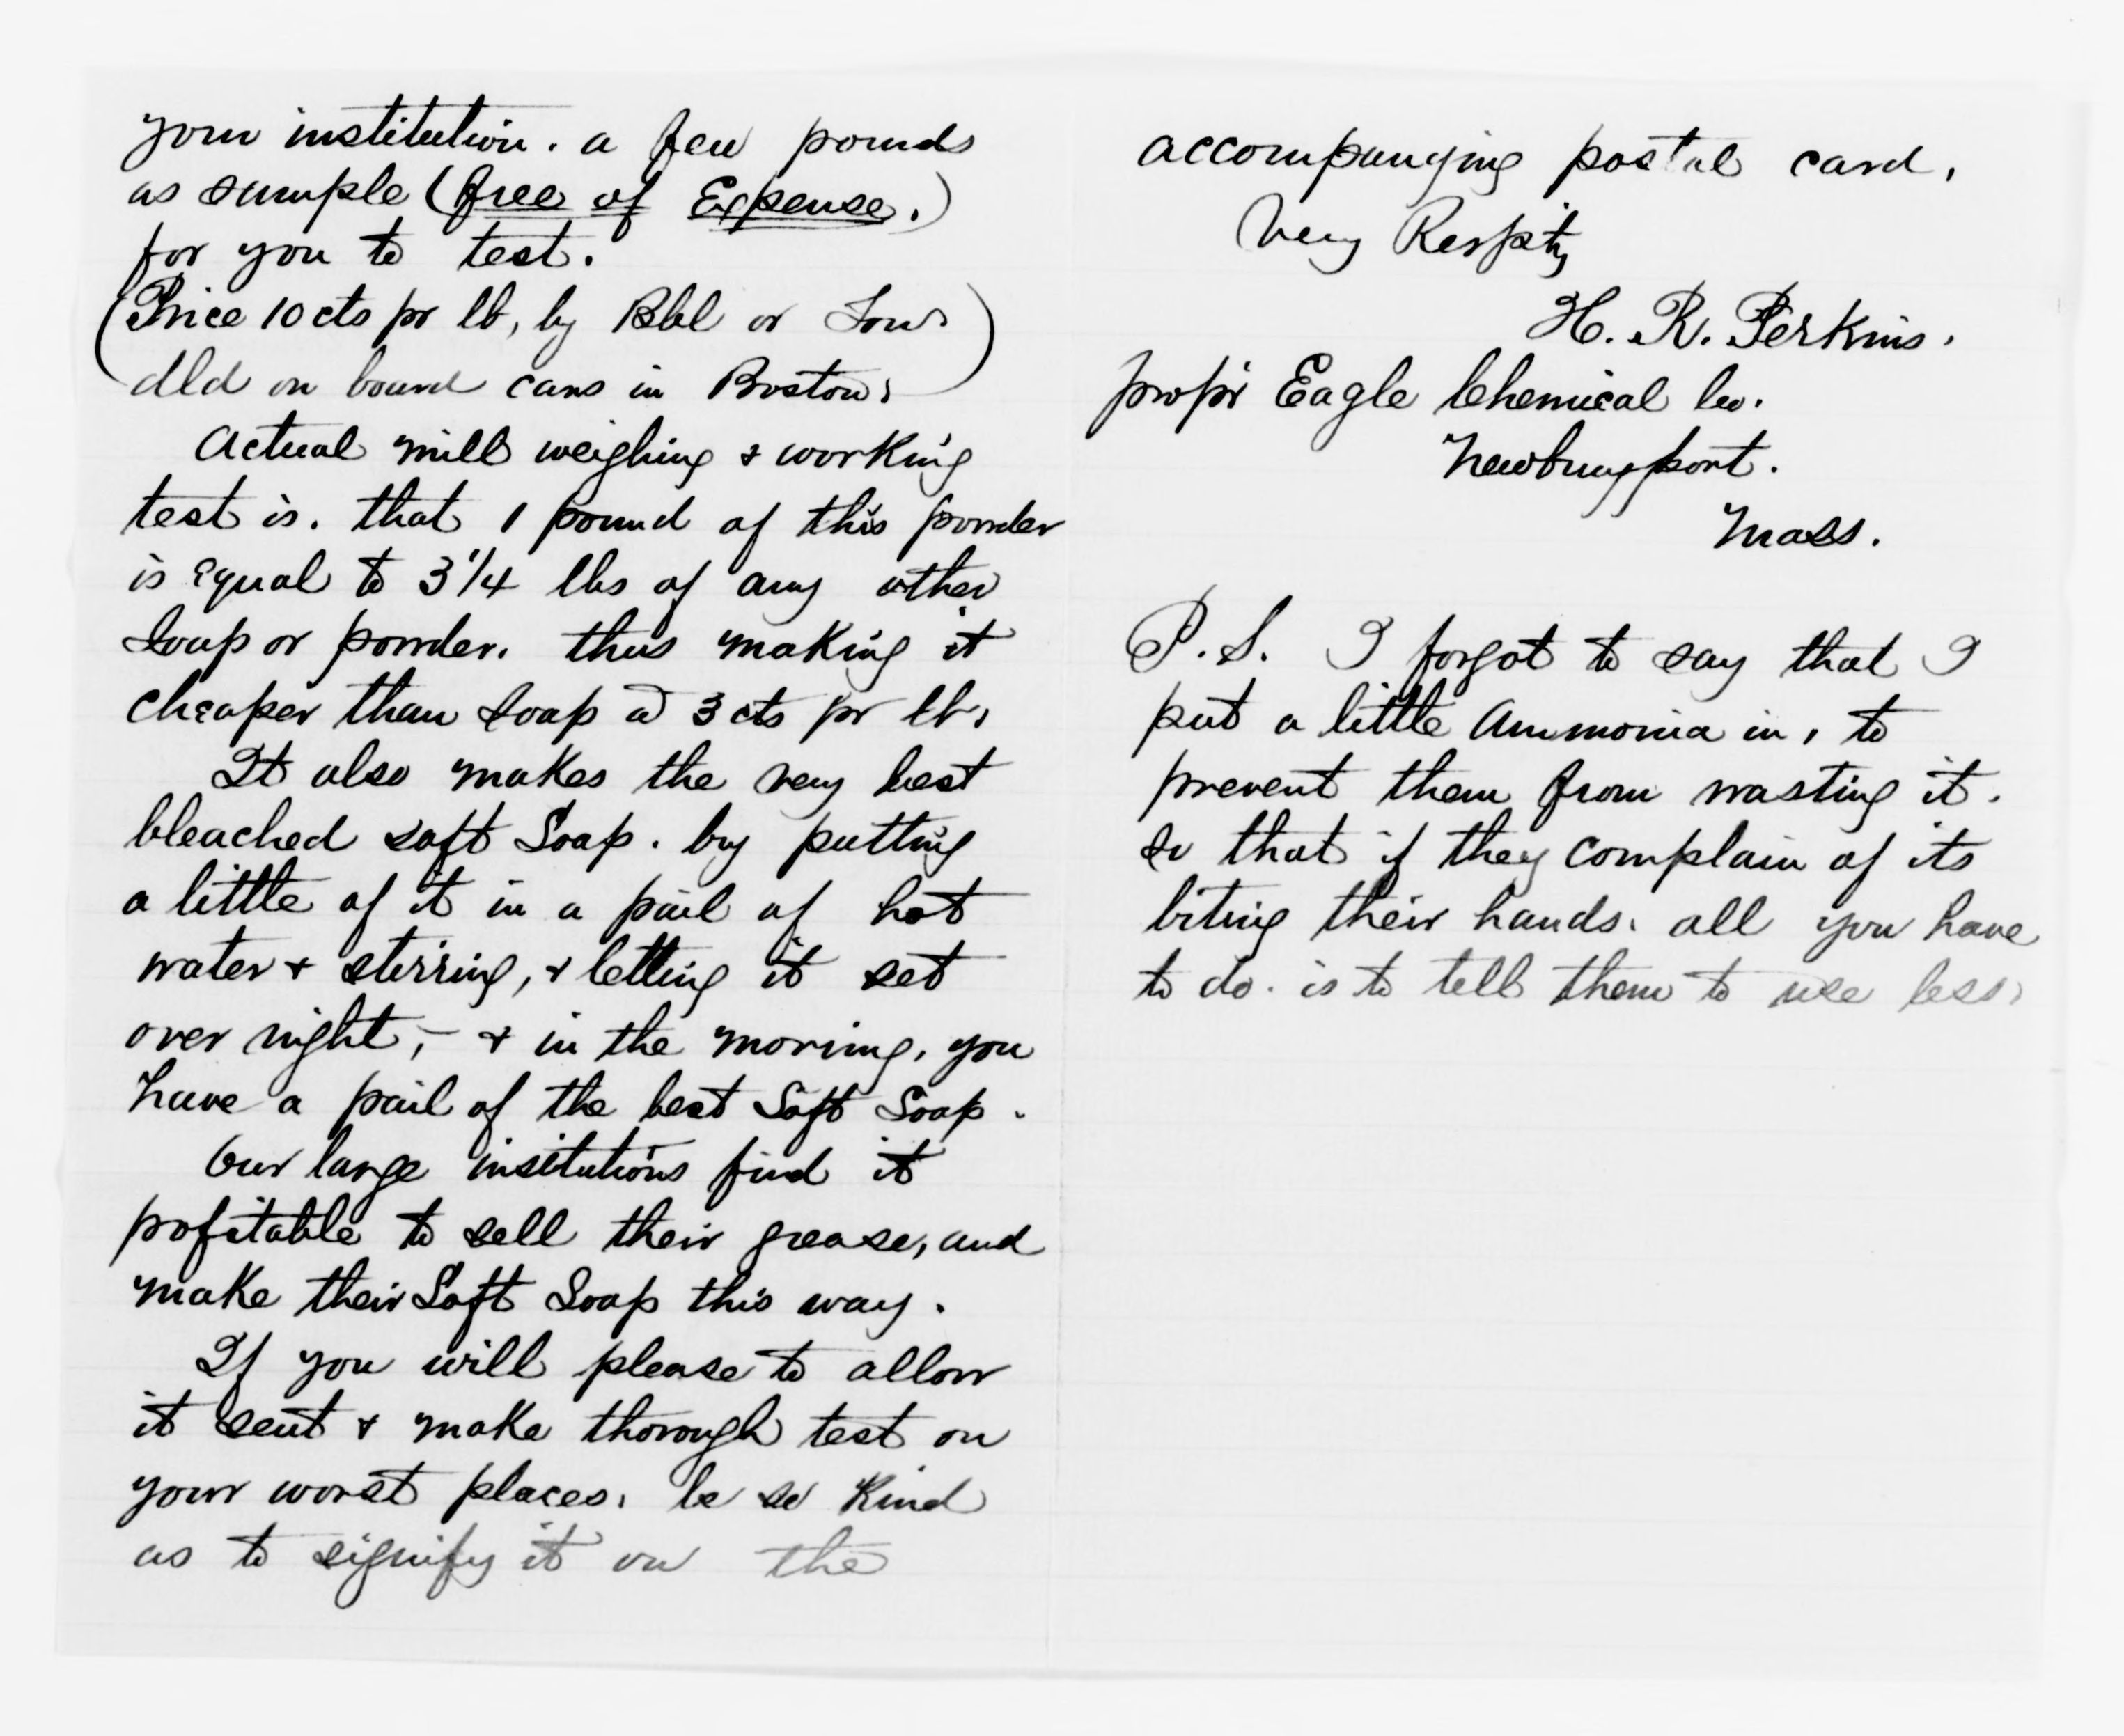 your institution. a few pounds
as sample (free of Expense.)
for you to test.
(Price 10 cts pr lb, by Bbl or Ton
dld on board cars in Boston.)
Actual mill weighing & working
test is. that 1 pound of this powder
is equal to 3 1/4 lbs of any other
Soap or powder. thus making it
cheaper than Soap @ 3 cts pr lb.
It also makes the very best
bleached soft Soap. by putting
a little of it in a pail of hot
water & stirring, & letting it set
over night, - & in the morning, you
have a pail of the best Soft Soap.
Our large insitutions find it
profitable to sell their grease, and
make their Soft Soap this way.
If you will please to allow
it sent & make thorough test on
your worst places. be so kind
as to signify it on the
accompanying postal card.
Very Respty
H. R. Perkins.
prop'r Eagle Chemical Co.
Newburyport.
Mass.
P.S. I forgot to say that I
put a little Ammonia in, to
prevent them from wasting it.
so that if they complain of its
biting their hands. all you have
to do. is to tell them to use less.